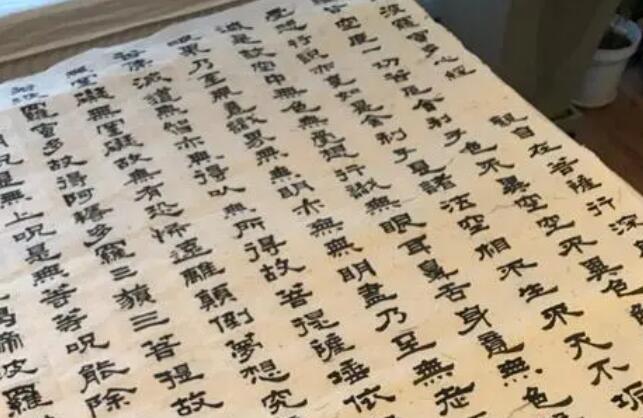 波羅蜜多心經
觀自在菩薩行深
皆空度一切苦厄舍利子色不異空空不異色
受想行識亦復如是舍利子是諸法空相不生不滅不垢
減是故空中無色無受想行識無眼耳鼻舌身意無色
眼界乃至無意識界無無明亦無無明盡乃至無老
苦集滅道無智亦無得以無所得故菩提薩埵依
罣礙無罣礙故無有恐怖遠離顛倒夢想究
波羅蜜多故得阿耨多羅三藐三菩提故
明呪是無上呪是無等等呪能除
揭諦波羅